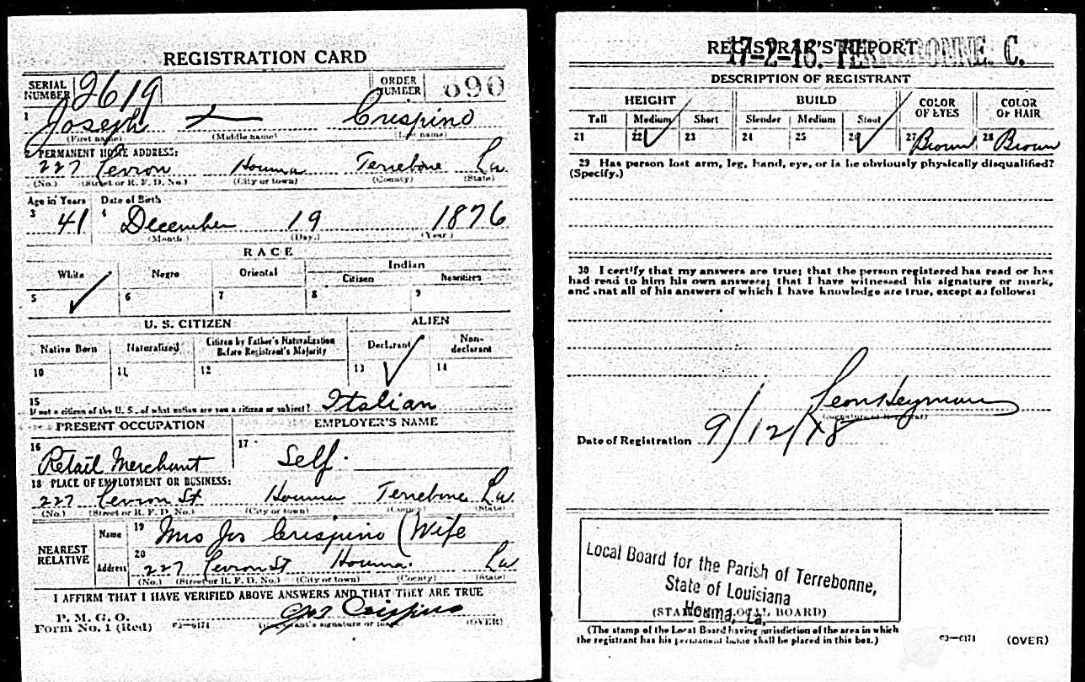 REGISTRATION CARD
SERIAL NUMBER 2619 ORDER NUMBER 890
1 Joseph Crispino
(First name) (Middle name) (Last name)
2 PERMANENT HOME ADDRESS:
227 Levron Houma Terrebone La
(No.) (Street or R. F. D. No.) (City or town) (County) (State)
Age in Years Date of Birth
3 41 4 December 19 1876
(Month.) (Day.) (Year.)
RACE
White Negro Oriental Indian
Citizen Noncitizen
5 ✓ 6 7 8 9
U. S. CITIZEN ALIEN
Native Born Naturalized Citizen by Father's Naturalization Before Registrant's Majority Declarant Non-declarant
10 11 12 13 ✓ 14
15 If not a citizen of the U. S., of what nation are you a citizen or subject? Italian
PRESENT OCCUPATION EMPLOYER'S NAME
16 Retail Merchant 17 Self.
18 PLACE OF EMPLOYMENT OR BUSINESS:
227 Levron St Houma Terrebone La
(No.) (Street or R. F. D. No.) (City or town) (County) (State)
NEAREST RELATIVE
Name 19 Mrs Jos Crispino (Wife
Address 20 227 Levron St Houma. La
(No.) (Street or R. F. D. No.) (City or town) (County) (State)
I AFFIRM THAT I HAVE VERIFIED ABOVE ANSWERS AND THAT THEY ARE TRUE
P. M. G. O.
Form No. 1 (Red) 03—6171 Jos Crispino
(Registrant's signature or mark) (OVER)
REGISTRAR'S REPORT
17-2-16. TERREBONNE. C.
DESCRIPTION OF REGISTRANT
HEIGHT BUILD COLOR OF EYES COLOR OF HAIR
Tall Medium Short Slender Medium Stout
21 22 ✓ 23 24 25 26 ✓ 27 Brown 28 Brown
29 Has person lost arm, leg, hand, eye, or is he obviously physically disqualified?
(Specify.)
30 I certify that my answers are true; that the person registered has read or has
had read to him his own answers; that I have witnessed his signature or mark,
and that all of his answers of which I have knowledge are true, except as follows:
Leon Heyman
(Signature of Registrar)
Date of Registration 9/12/18
Local Board for the Parish of Terrebonne,
State of Louisiana
Houma, La.
(STAMP OF LOCAL BOARD)
(The stamp of the Local Board having jurisdiction of the area in which
the registrant has his permanent home shall be placed in this box.)
03—6171 (OVER)